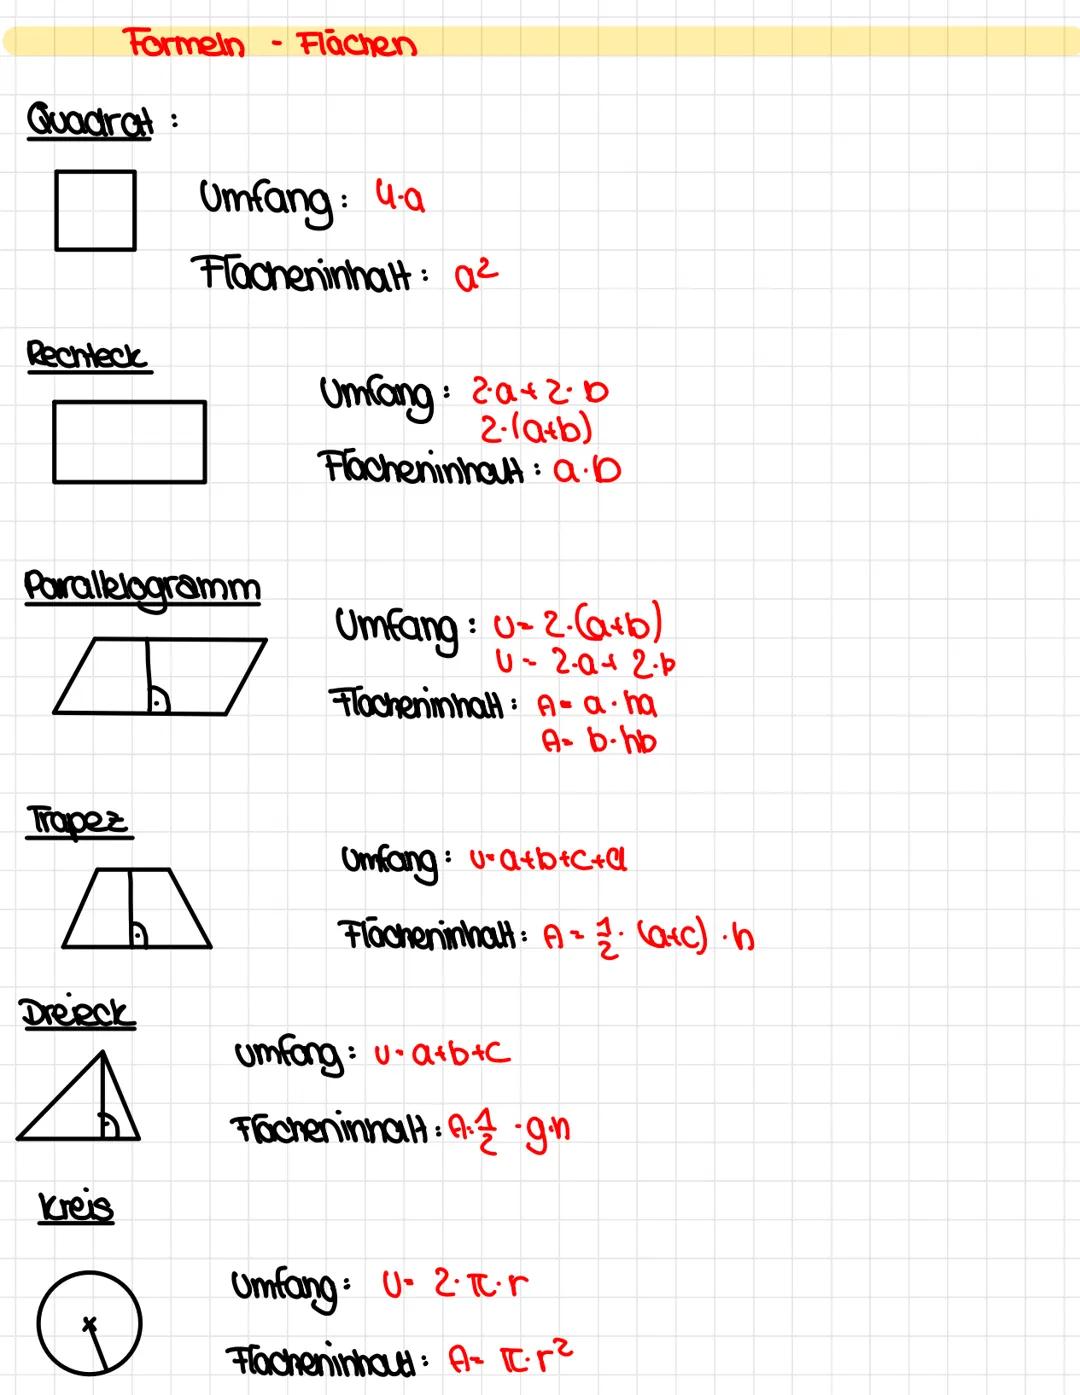 Formeln - Flächen
Quadrat :
Umfang : 4·a
Flächeninhalt : a²
Rechteck
Umfang : 2·a + 2·b
2·(a+b)
Flächeninhalt : a·b
Parallelogramm
Umfang : U = 2·(a+b)
U = 2·a + 2·b
Flächeninhalt : A = a·ha
A = b·hb
Trapez
Umfang : U = a+b+c+d
Flächeninhalt : A = 1/2 · (a+c) · h
Dreieck
Umfang : U = a+b+c
Flächeninhalt : A = 1/2 · g·h
Kreis
Umfang : U = 2·π·r
Flächeninhalt : A = π·r²